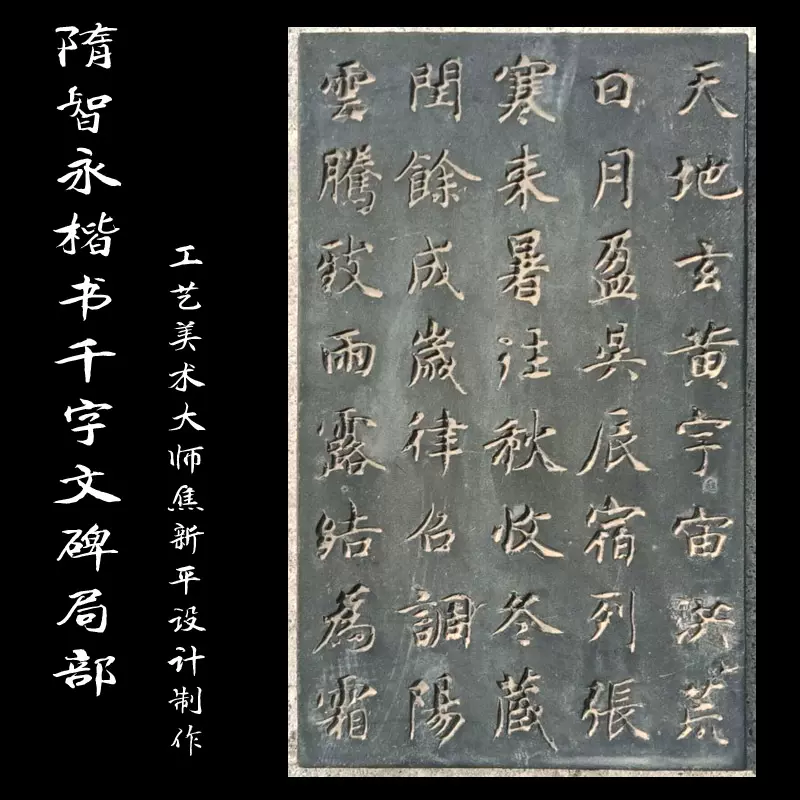 隋智永楷书千字文碑局部
工艺美术大师焦新平设计制作
天地玄黄宇宙洪荒
日月盈昃辰宿列張
寒来暑往秋收冬藏
閏餘成歲律召調陽
雲騰致雨露結為霜